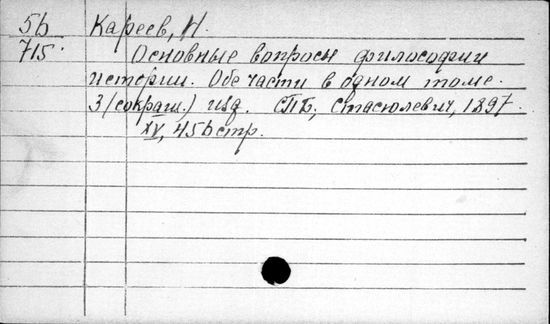 5b Кареев, Н.
715. Основные вопросы философии
истории. Обе части в одном томе.
3 (сокращ.) изд. СПБ, Стасюлевич, 1897.
XV, 456 стр.